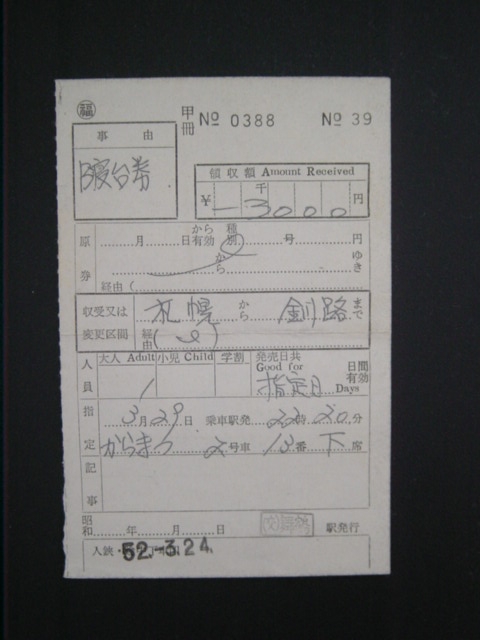 福
甲冊 No 0388 No 39
事由
B寝台券
領収額 Amount Received
千
¥ -3000円
原券
月 日から有効 種別 号 円
から ゆき
経由(
収受又は変更区間
札幌から釧路まで
経由( )
人員 大人 Adult 小児 Child 学割 発売日共 Good for 日間有効 Days
1 指定日
指定
3月29日 乗車駅発 22時20分
からまつ 2号車 13番下席
記事
昭和 年 月 日 駅発行
入鋏・
52.-3.24